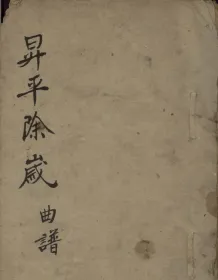 昇平除歲
曲譜